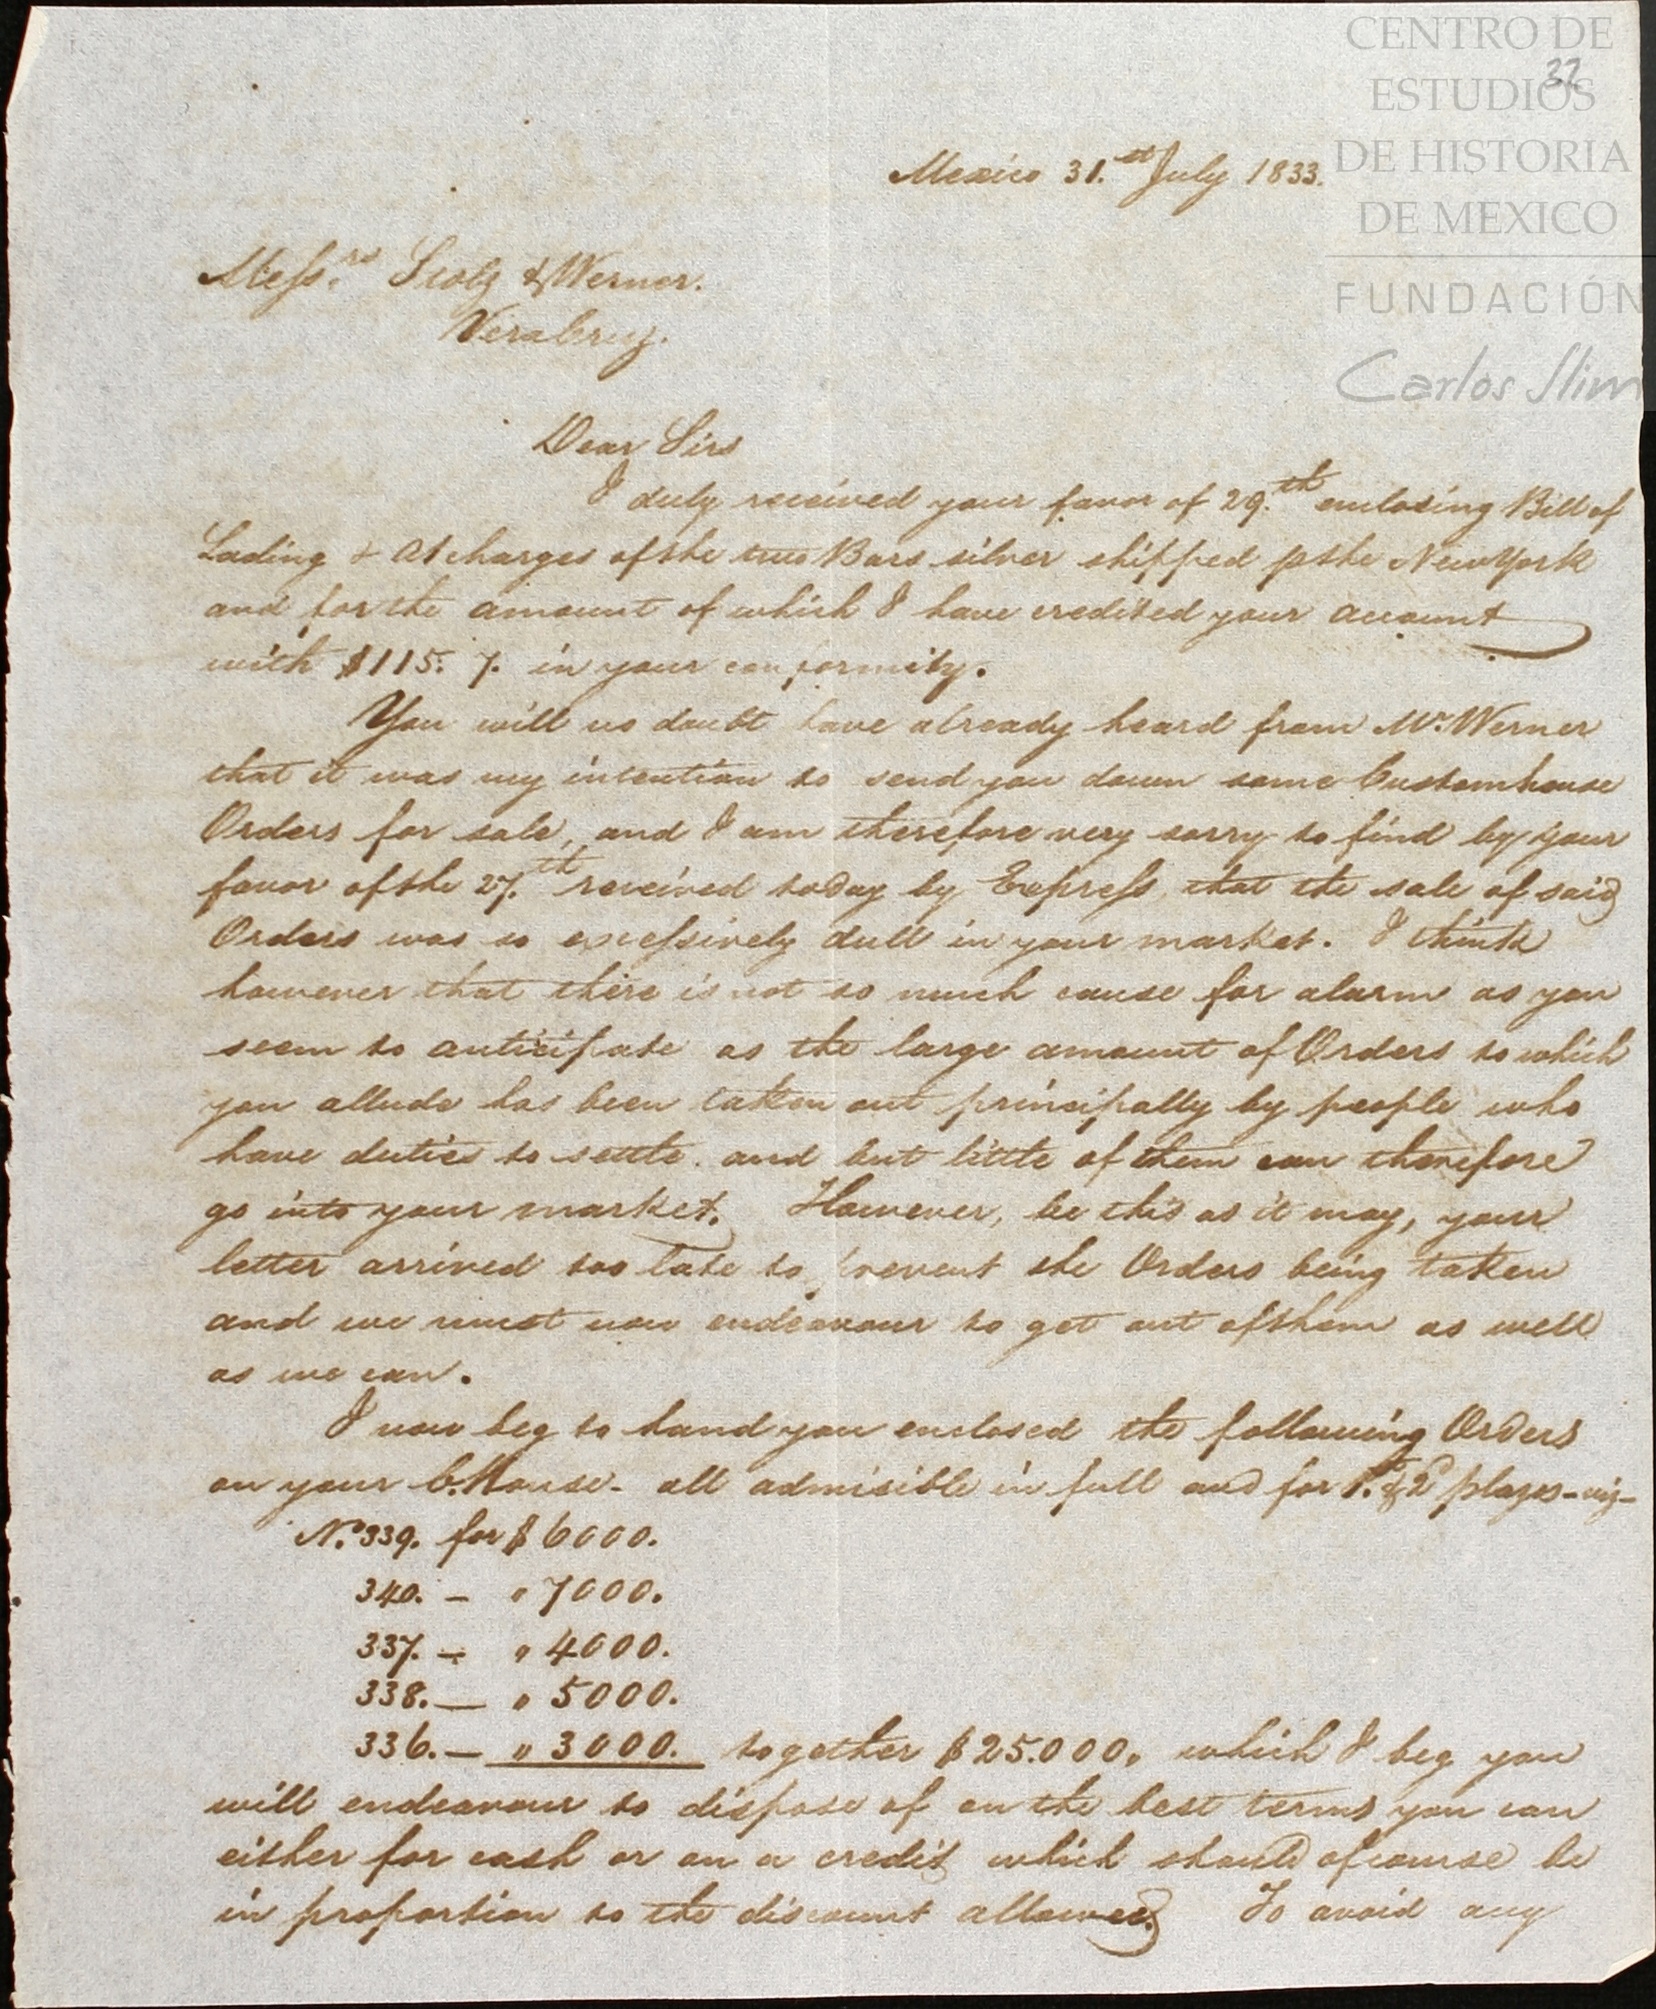 CENTRO DE
ESTUDIOS
DE HISTORIA
DE MEXICO
FUNDACIÓN
Carlos Slim
32
Mexico 31.st July 1833.
Messrs. Stolz & Werner.
Veracruz.
Dear Sirs
I duly received your favor of 29.th enclosing Bill of
Lading & a/charges of the two Bars silver shipped p the New York
and for the amount of which I have credited your account
with $115. 7. in your conformity.
You will no doubt have already heard from Mr. Werner
that it was my intention to send you down some Customhouse
Orders for sale, and I am therefore very sorry to find by your
favor of the 27.th received today by Express, that the sale of said
Orders was so excessively dull in your market. I think
however that there is not so much cause for alarm as you
seem to anticipate as the large amount of Orders to which
you allude has been taken out principally by people who
have duties to settle. and but little of them can therefore
go into your market. However, be this as it may, your
letter arrived too late to prevent the Orders being taken
and we must now endeavour to get out of them as well
as we can.
I now beg to hand you enclosed the following Orders
on your C. House - all admisible in full and for 1st. & 2d plazos - viz -
No. 339. for $ 6000.
340. — " 7000.
337. — " 4000.
338. — " 5000.
336. — " 3000. together $25.000, which I beg you
will endeavour to dispose of on the best terms you can
either for cash or on a credit, which should of course be
in proportion to the discount allowed. To avoid any